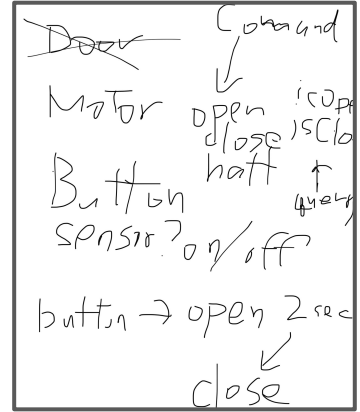 Door Command
Motor open isOpe
close isClo
halt
Button query
sensor? on/off
button → open 2 sec
close